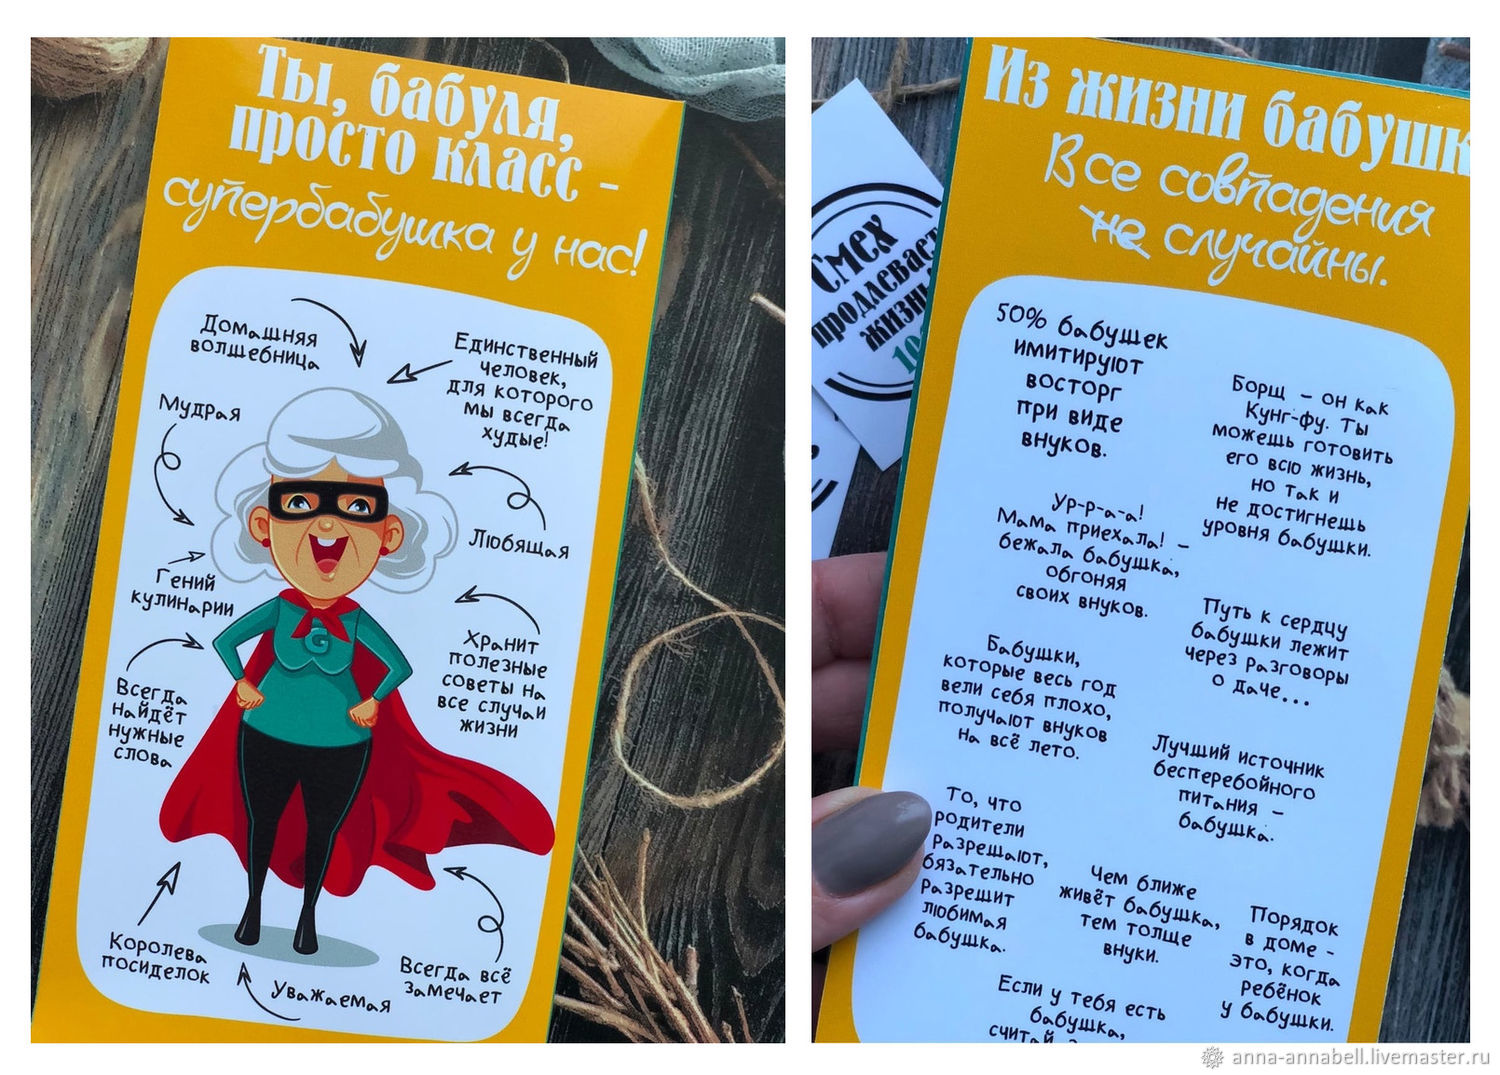 Ты, бабуля,
просто класс -
супербабушка у нас!
Домашняя
волшебница
Единственный
человек,
для которого
мы всегда
худые!
Мудрая
Любящая
Гений
кулинарии
Хранит
полезные
советы на
все случаи
жизни
Всегда
найдёт
нужные
слова
Королева
посиделок
Уважаемая
Всегда всё
замечает
Смех
продлевает
жизнь
Из жизни бабушк
Все совпадения
не случайны.
50% бабушек
имитируют
восторг
при виде
внуков.
Борщ - он как
Кунг-фу. Ты
можешь готовить
его всю жизнь,
но так и
не достигнешь
уровня бабушки.
Ур-р-а-а!
Мама приехала! -
бежала бабушка,
обгоняя
своих внуков.
Путь к сердцу
бабушки лежит
через разговоры
о даче...
Бабушки,
которые весь год
вели себя плохо,
получают внуков
на всё лето.
Лучший источник
бесперебойного
питания -
бабушка.
То, что
родители
разрешают,
бязательно
разрешит
любимая
бабушка.
Чем ближе
живёт бабушка,
тем толще
внуки.
Порядок
в доме -
это, когда
ребёнок
у бабушки.
Если у тебя есть
бабушка,
считай
anna-annabell.livemaster.ru